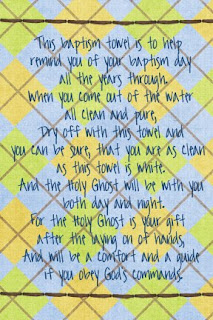 This baptism towel is to help
remind you of your baptism day
all the years through.
When you come out of the water
all clean and pure,
Dry off with this towel and
you can be sure, that you are as clean
as this towel is white.
And the Holy Ghost will be with you
both day and night.
For the Holy Ghost is your gift
after the laying on of hands,
And will be a comfort and a guide
if you obey God's commands.